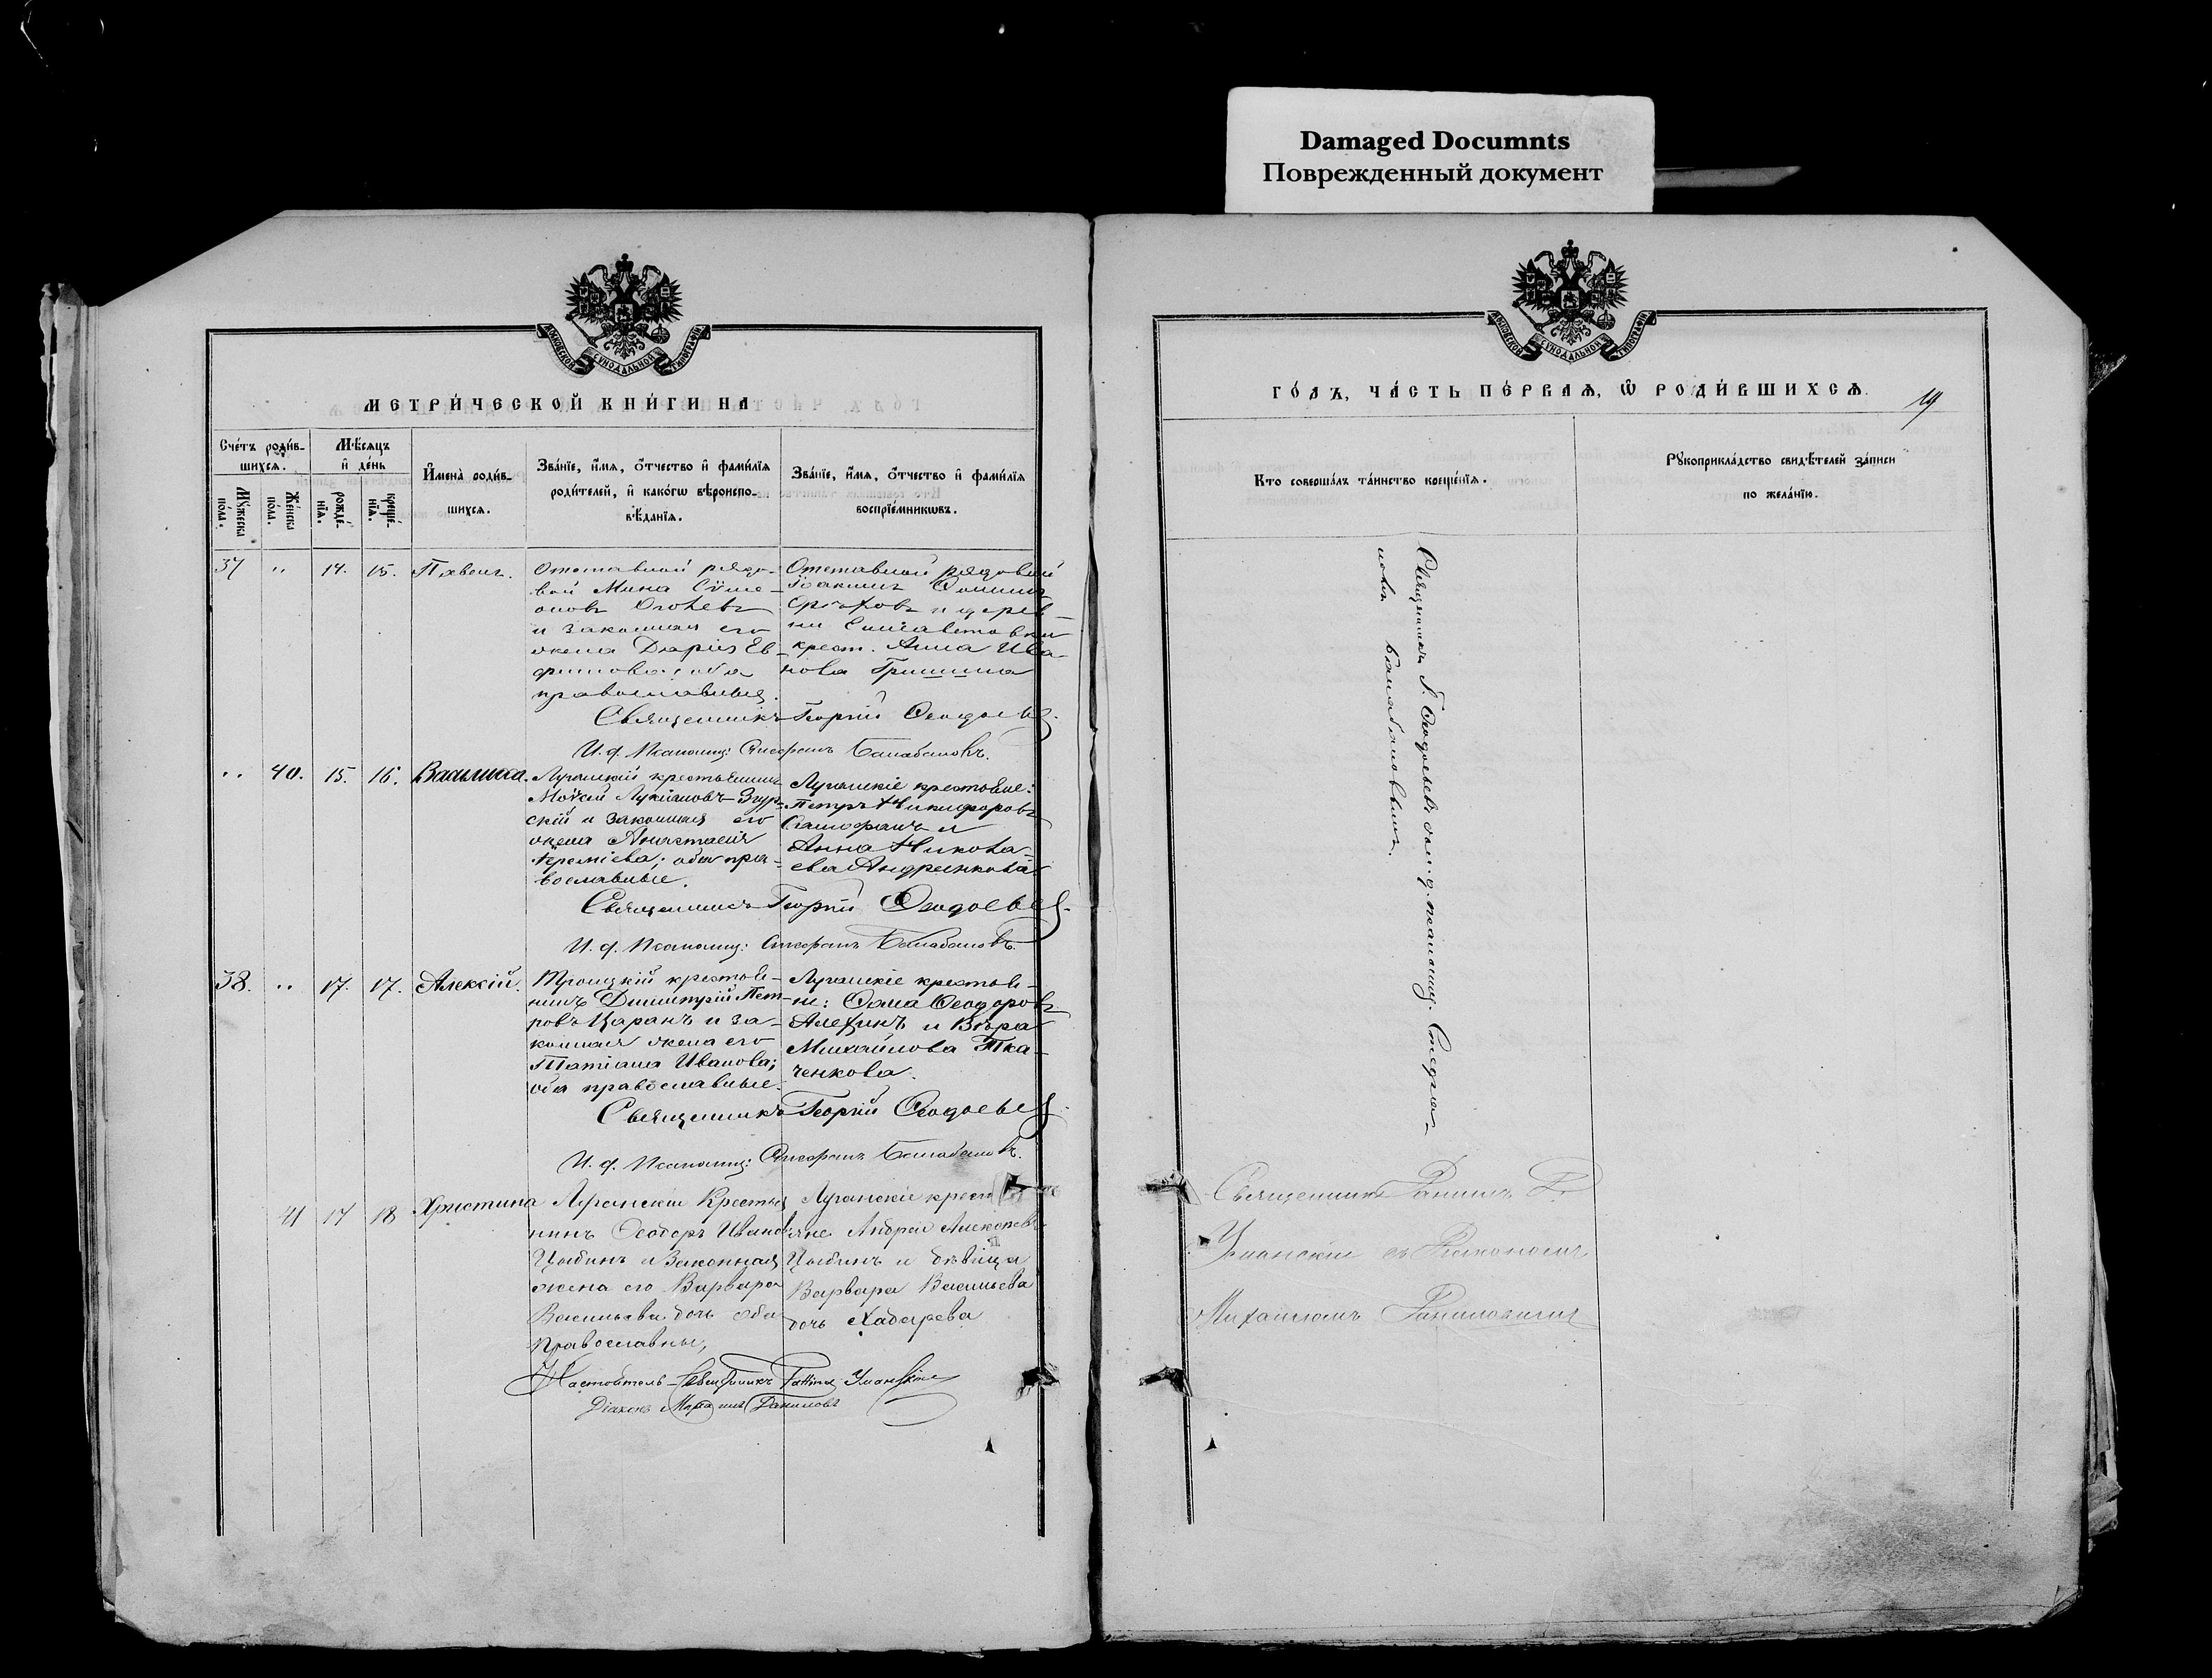 Damaged Documnts
Поврежденный документ
МОСКОВСКОЙ СѴНОДАЛЬНОЙ ТИПОГРАФІИ
МЕТРИ́ЧЕСКОЙ КНИ́ГИ НА
Сче́тъ роди́в-
шихся.
Му́жеска
по́ла.
Же́нска
по́ла.
Мѣ́сяцъ
и҆ де́нь
рожде́-
нїя.
креще́-
нїя.
И҆мена̀ роди́в-
шихся.
Зва́нїе, и҆́мя, ѻ҆́тчество и҆ фами́лїя
роди́телей, и҆ како́гѡ вѣроиспо-
вѣ́данїя.
Зва́нїе, и҆́мя, ѻ҆́тчество и҆ фами́лїя
воспрїе́мникѡвъ.
37 " 14. 15. Павелъ.
Отставной рядо-
вой Мина Сѵме-
оновъ
и законная его
жена Дарія Ев-
фимова; оба
православные.
Отставной рядовой
Іоакимъ
и дерев-
ни Елисаветовки
крест. Анна Ива-
нова Гришина
Священникъ Георгій Ѳеодосьевъ.
И. д. Псаломщ: Стефанъ Балабановъ.
" 40. 15. 16. Василисса.
Луганскій крестьянинъ
Моѵсей Лукіановъ Згур-
скій и законная его
жена Анастасія
Іереміева; оба пра-
вославные.
Луганскіе крестьяне:
Петръ Никифоровъ
и
Анна Никола-
ева Андреенкова
Священникъ Георгій Ѳеодосьевъ.
И. д. Псаломщ: Стефанъ Балабановъ.
38. " 17. 17. Алексій.
Троицкій крестья-
нинъ Димитрій Пет-
ровъ Царанъ и за-
конная жена его
Татіана Иванова;
оба православные.
Луганскіе крестья-
не: Ѳома Ѳеодоровъ
Алехинъ и Вѣра
Михайлова Тка-
ченкова.
Священникъ Георгій Ѳеодосьевъ.
И. д. Псаломщ: Стефанъ Балабановъ.
41 17 18 Христина
Луганскіи Крестья
нинъ Ѳеодоръ Иванов
Цыбинъ и Законная
жена его Варвара
Васильева дочь оба
православны,
Луганскіе крест
яне Андрей Алексеевъ
Цыбинъ и дѣвица
Варвара Васильева
дочь Хабарева
Настоятель-Священникъ Уманскій
Діаконъ Михаилъ Даниловъ
ГО́ДЪ, ЧА́СТЬ ПЕ́РВАЯ, Ѡ҆ РОДИ́ВШИХСЯ.
19
Кто соверша́лъ та́инство креще́нїя.
Рꙋкоприкла́дство свидѣ́телей за́писи
по жела́нїю.
Священникъ Г. Ѳеодосьевъ съ и. д. псаломщ. Стефа-
номъ Балабановымъ.
Священникъ
Уманскіи съ Діакономъ
Михаиломъ Даниловымъ